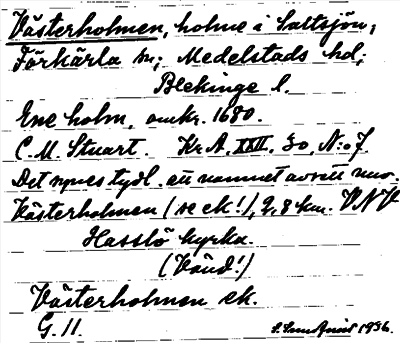 Västerholmen, holme i Saltsjön,
Förkärla sn; Medelstads hd;
Blekinge l.
Ene holm, omkr. 1680.
C. M. Stuart. Kr. A. XXII, 30, N:o 7
Det synes tydl. att namnet avsett nuv.
Västerholmen (se ek!), 2,8 km. VNV
Hasslö kyrka.
(Vänd!)
Västerholmen ek.
G. 11. 1936.